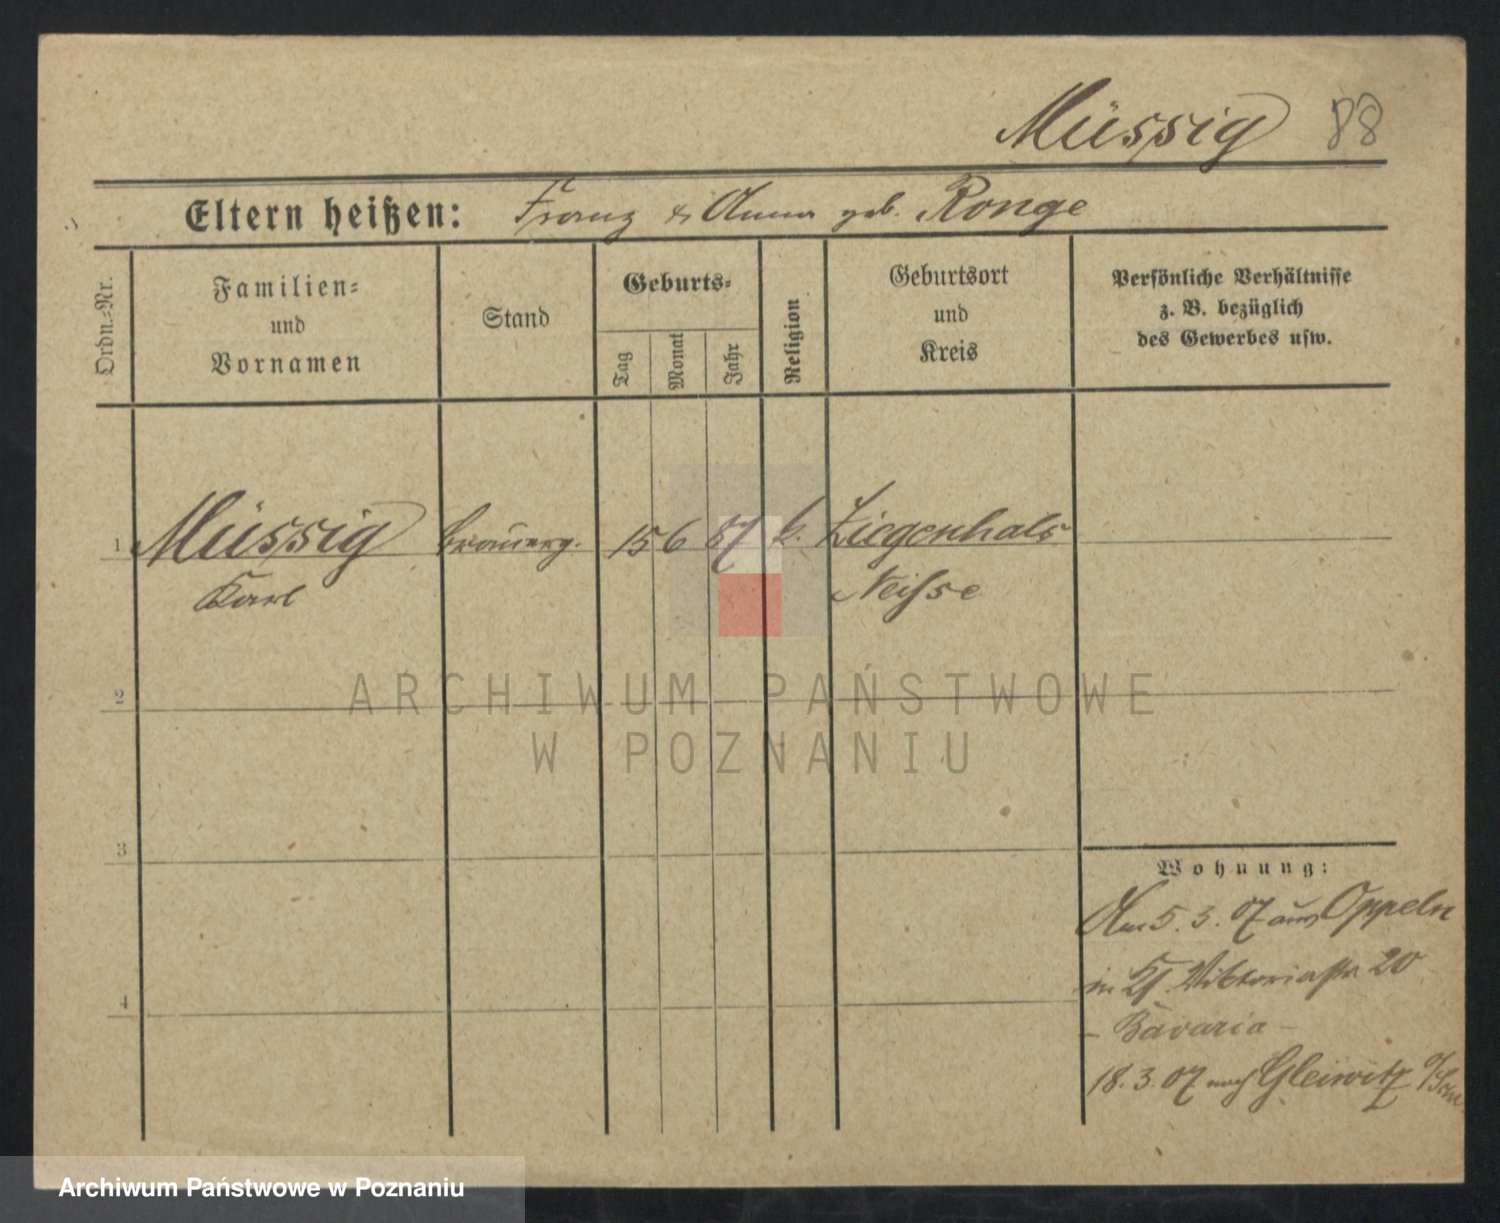 Müssig 88
Eltern heißen: Franz & Anna geb. Ronge
Ordn.-Nr.
Familien-
und
Vornamen
Stand
Geburts-
Tag
Monat
Jahr
Religion
Geburtsort
und
Kreis
Persönliche Verhältnisse
z. B. bezüglich
des Gewerbes usw.
1 Müssig Brauerg. 15 6 87 k. Ziegenhals
Karl Neisse
2
ARCHIWUM PAŃSTWOWE
W POZNANIU
3
Wohnung:
Am 5. 3. 07 aus Oppeln
in Viktoriastr. 20
- Bavaria -
4
18. 3. 07 nach Gleiwitz
Archiwum Państwowe w Poznaniu